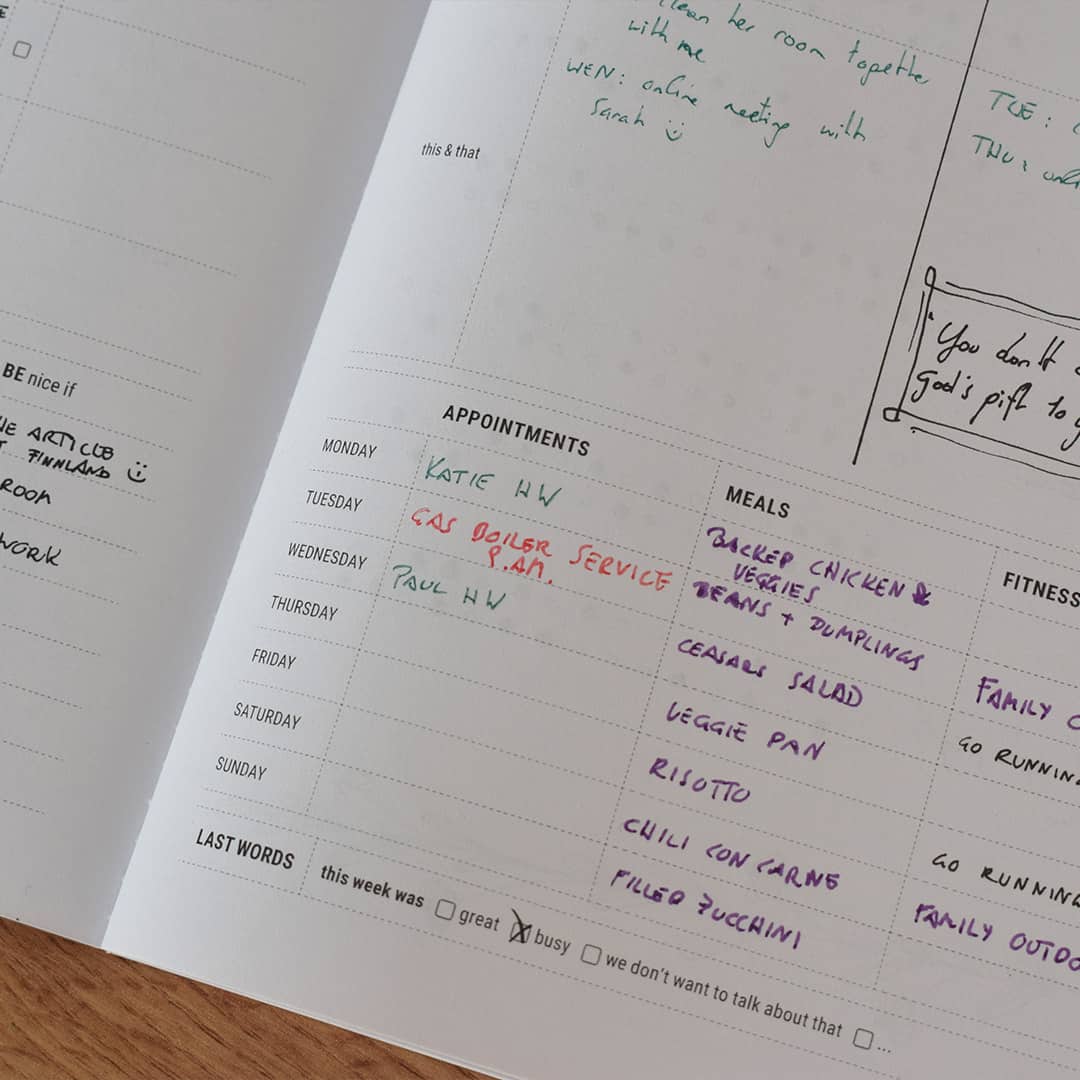 her room together
with me
WEN: online meeting with
Sarah
TUE:
THU:
this & that
"You don't
God's gift to
BE nice if
ARTICLE
FINNLAND
ROOM
WORK
APPOINTMENTS
MEALS
FITNESS
MONDAY KATIE HW BACKED CHICKEN &
VEGGIES
TUESDAY GAS BOILER SERVICE
P.AM.
BEANS + DUMPLINGS FAMILY
WEDNESDAY PAUL HW CEASARS SALAD GO RUNNING
THURSDAY VEGGIE PAN
FRIDAY RISOTTO GO RUNNING
SATURDAY CHILI CON CARNE FAMILY OUTDO
SUNDAY FILLED ZUCCHINI
LAST WORDS this week was great busy we don't want to talk about that ...